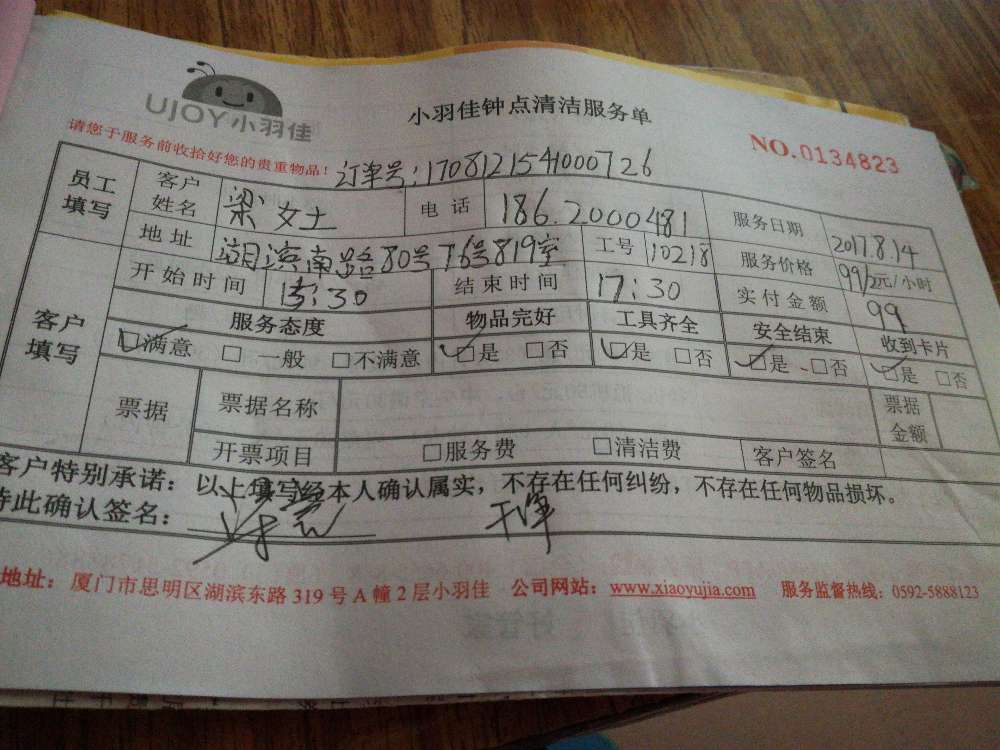 UJOY小羽佳
小羽佳钟点清洁服务单
请您于服务前收拾好您的贵重物品!
NO.0134823
订单号:1708121541000726
员工填写 客户姓名 梁女士 电话 186.2000481 服务日期 2017.8.14
地址 湖滨南路80号 819室 工号 10218 服务价格 元/小时
开始时间 15:30 结束时间 17:30 实付金额 99
客户填写 服务态度 物品完好 工具齐全 安全结束 收到卡片
□满意 □一般 □不满意 □是 □否 □是 □否 □是 □否 □是 □否
票据 票据名称 票据金额
开票项目 □服务费 □清洁费 客户签名
客户特别承诺:以上填写经本人确认属实,不存在任何纠纷,不存在任何物品损坏。
特此确认签名:
地址:厦门市思明区湖滨东路319号A幢2层小羽佳 公司网站:www.xiaoyujia.com 服务监督热线:0592-5888123